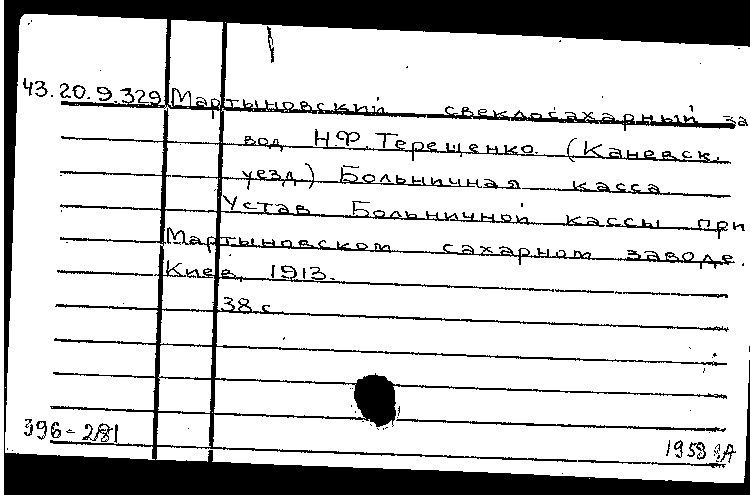 43.20.9.329 Мартыновский свеклосахарный за
вод Н.Ф. Терещенко (Каневск.
уезд.) Больничная касса
Устав Больничной кассы при
Мартыновском сахарном заводе.
Киев, 1913.
38 с.
396-281